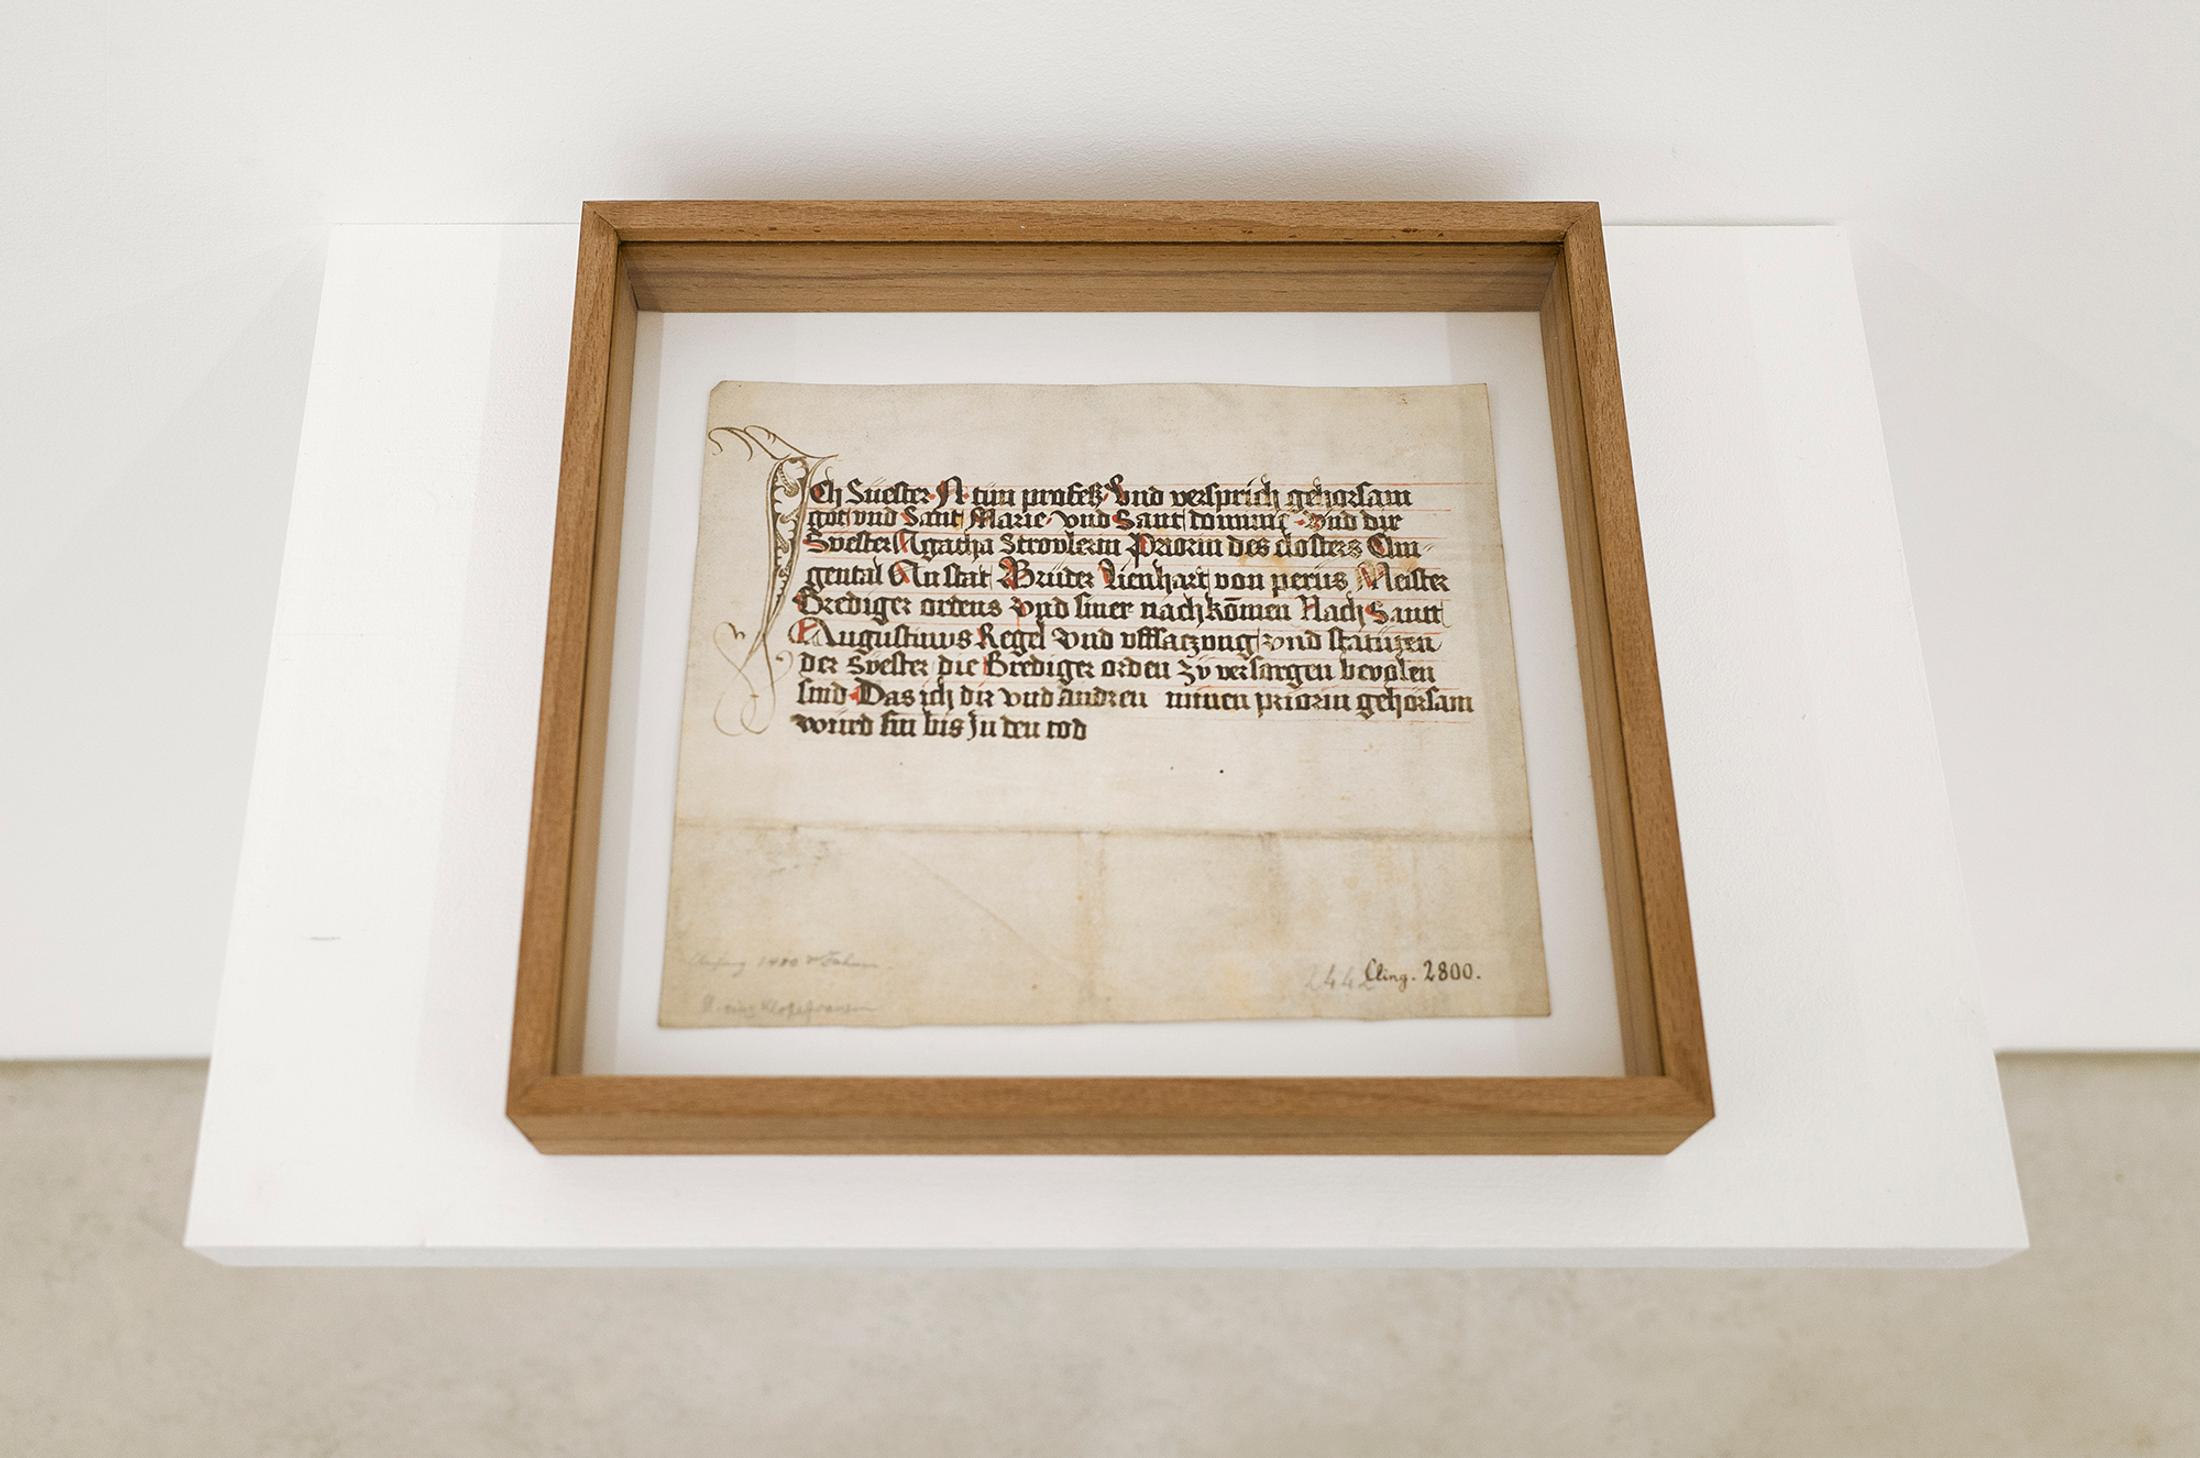 Ich Suester N tun profess Vnd versprich gehorsam
got vnd Sant Marie vnd Sant dominic vnd dir
Svester Agatha Strovlerin Priorin des closters Clin-
gental An stat Bruder Lienhart von perus Meister
Brediger ordens vnd siner nachkōmen Nach Sant
Augustinus Regel vnd vffsatzung vnd statuten
der Svester die Brediger orden zv versorgen bevolen
sind Das ich dir vnd andren minen priorin gehorsam
würd sin bis In den tod
1480
244 Cling. 2800.